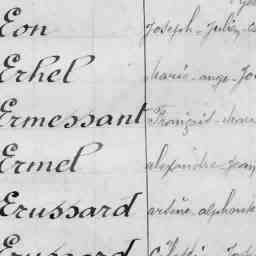 Eon Joseph Julien
Erhel Marie ange
Ermessant François marie
Ermel alexandre Jean
Erussard arsène alphonse
Erussard